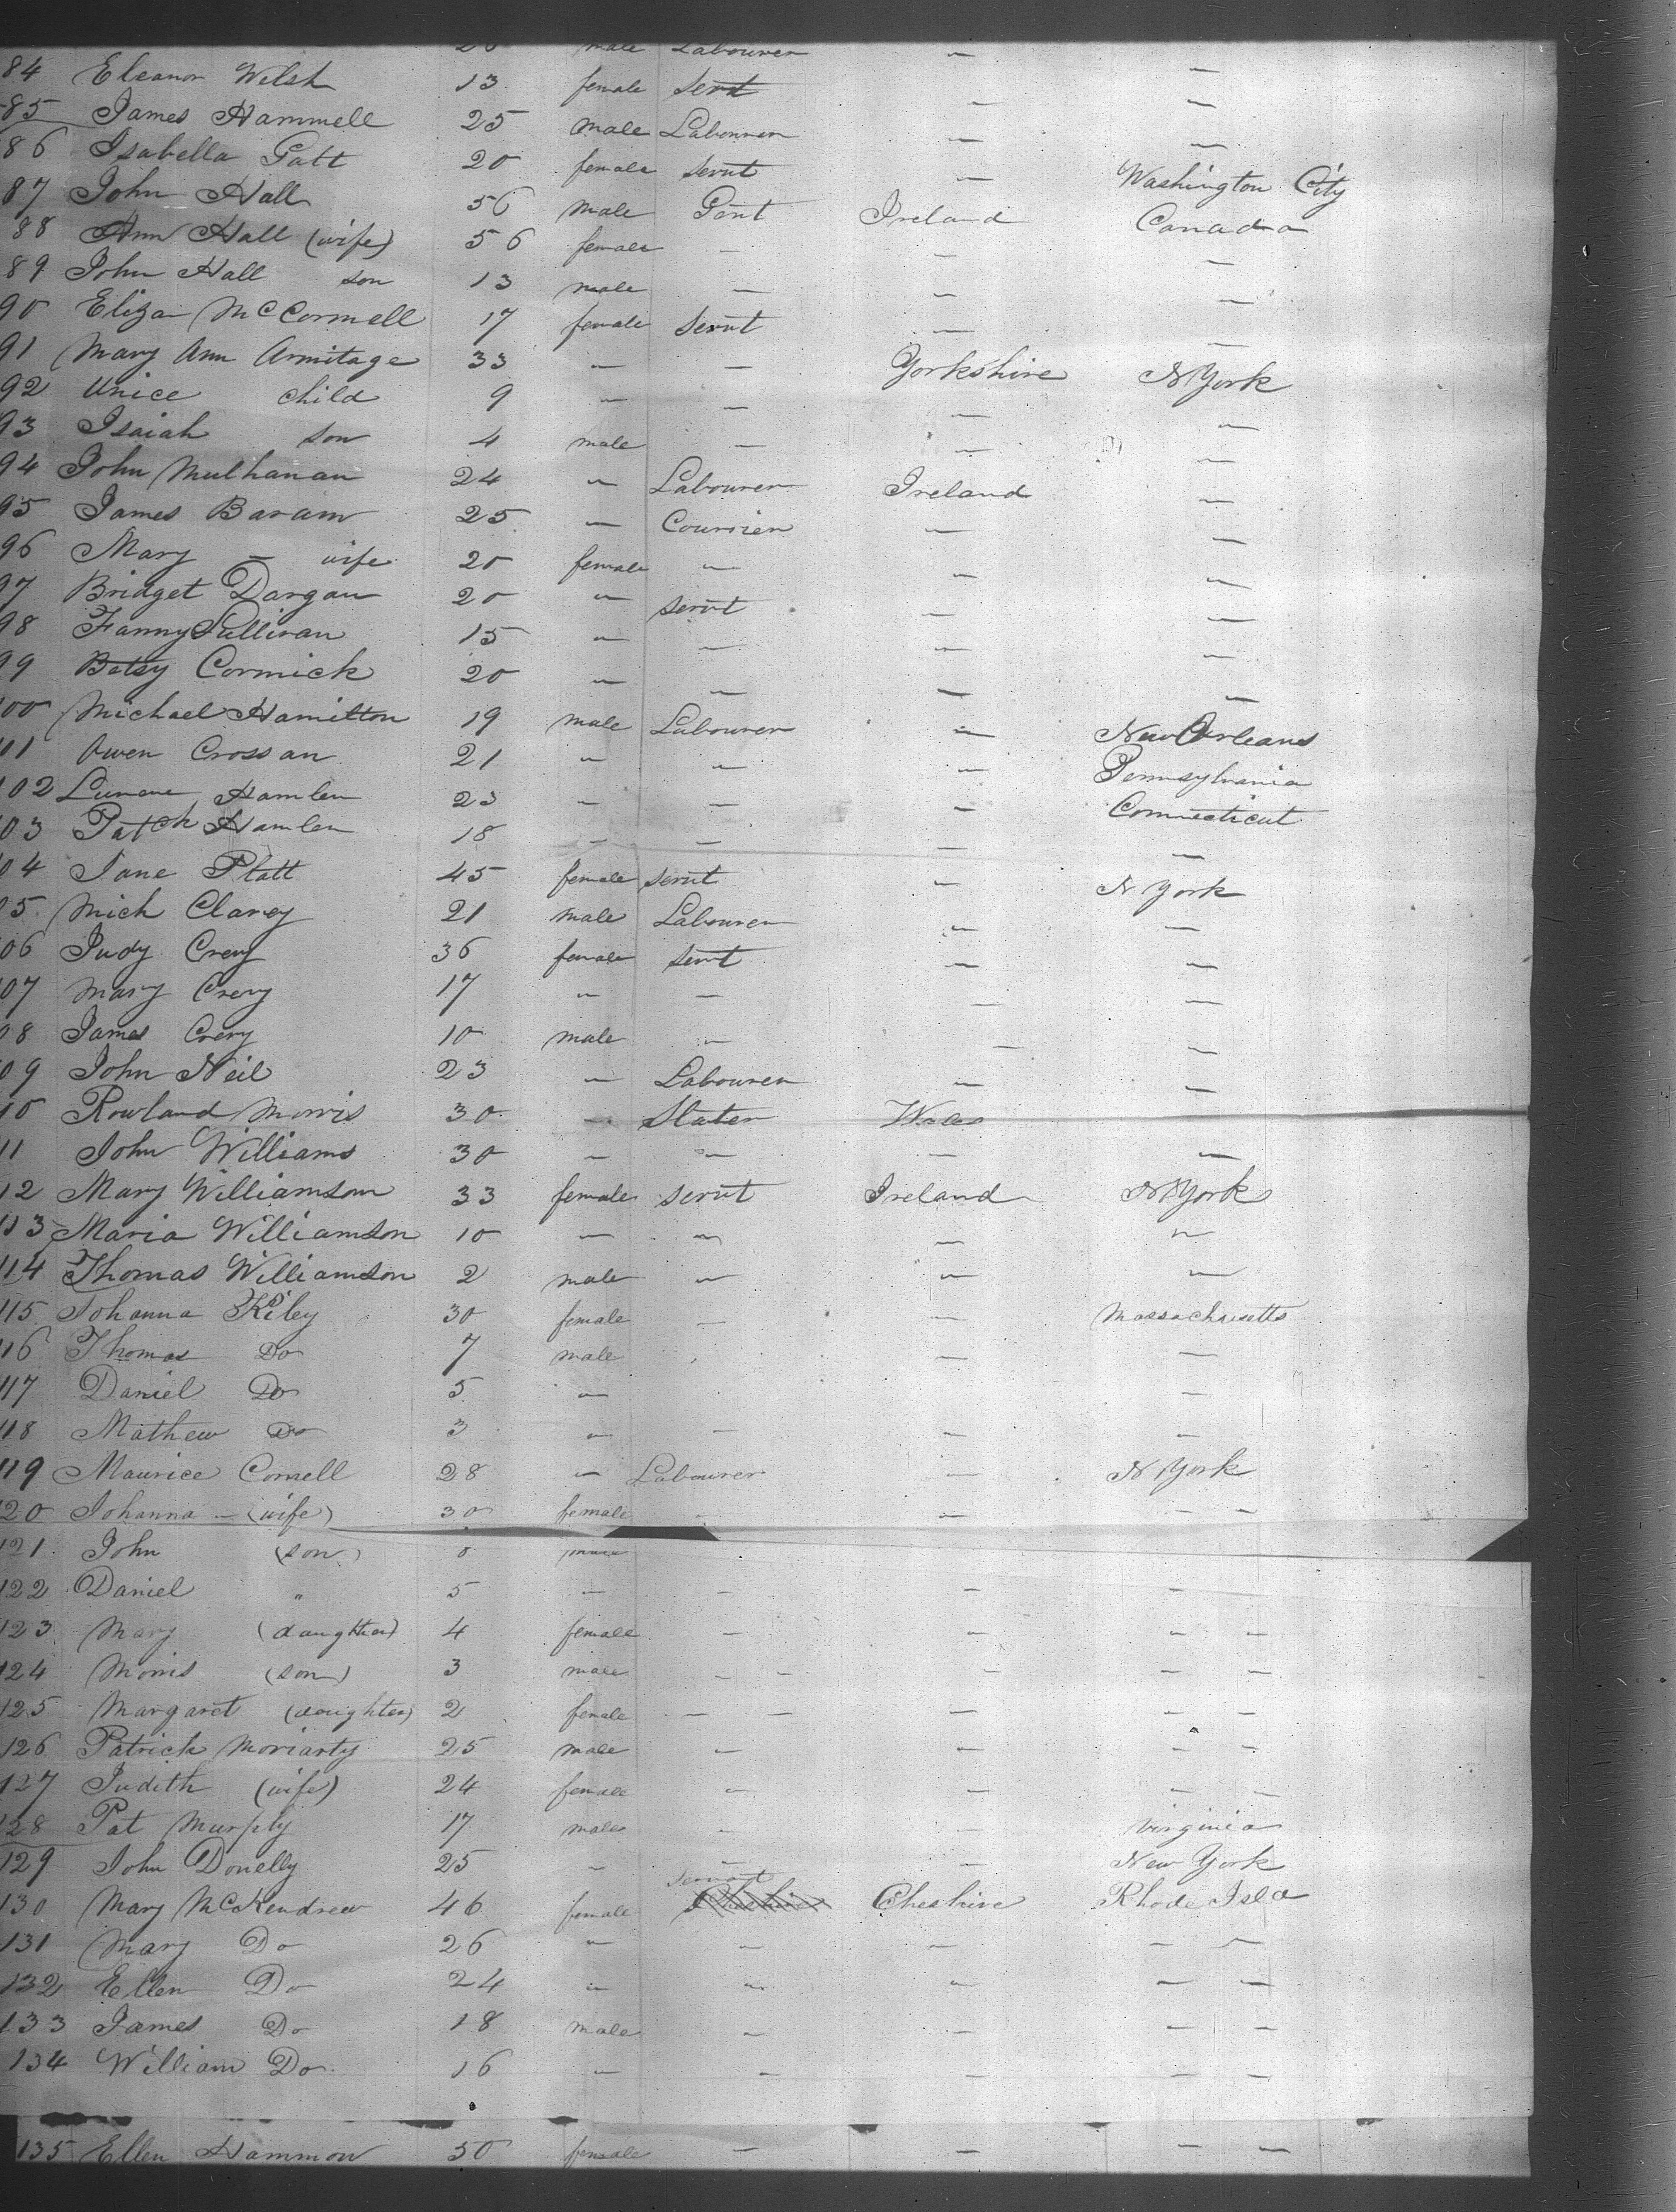 male Labourer —
84 Eleanor Welsh 13 female Servt — —
85 James Hammell 25 male Labourer — —
86 Isabella Gatt 20 female servt — —
87 John Hall 56 male Gent Ireland Washington City
88 Ann Hall (wife) 56 female — — Canada
89 John Hall son 13 male — — —
90 Eliza McCormell 17 female servt — —
91 Mary Ann Armitage 33 — — Yorkshire N York
92 Unice child 9 — — — —
93 Isaiah son 4 male — — —
94 John Mulhanan 24 — Labourer Ireland —
95 James Baram 25 — Courrier — —
96 Mary — wife 20 female — — —
97 Bridget Dargan 20 — servt — —
98 Fanny Sullivan 15 — — — —
99 Betsy Cormick 20 — — — —
00 Michael Hamilton 19 male Labourer — New Orleans
01 Owen Crossan 21 — — — Pennsylvania
102 Hamlen 23 — — — Connecticut
03 Patck Hamlen 18 — — — —
04 Jane Platt 45 female servt — N York
05 Mich Clarey 21 male Labourer — —
06 Judy Crevy 36 female servt — —
07 Mary Crevy 17 — — — —
08 James Crevy 10 male — — —
09 John Neil 23 — Labourer — —
10 Rowland Morris 30 — Slater Wales
11 John Williams 30 — — — —
12 Mary Williamson 33 female servt Ireland N York
113 Maria Williamson 10 — — — —
114 Thomas Williamson 2 male — — —
115 Johanna Kiley 30 female — — Massachusetts
116 Thomas Do 7 male — —
117 Daniel Do 5 — —
118 Mathew Do 3 — — — —
119 Maurice Cornell 28 — Labourer — N York
120 Johanna — (wife) 30 female — — — —
121 John (son) male
122 Daniel " 5 — — — —
123 Mary (daughter) 4 female — — — —
124 Morris (son) 3 male — — — — —
125 Margaret (daughter) 2 female — — — — —
126 Patrick Moriarty 25 male — — — —
127 Judith (wife) 24 female — — — —
128 Pat Murphy 17 male — — Virginia
129 John Donelly 25 — — — New York
130 Mary McKendrew 46 female servant Cheshire Rhode Isld
131 Mary Do 26 — — — — —
132 Ellen Do 24 — — — — —
133 James Do 18 male — — — —
134 William Do 16 — — — — —
135 Ellen Hammon 50 female — — — —